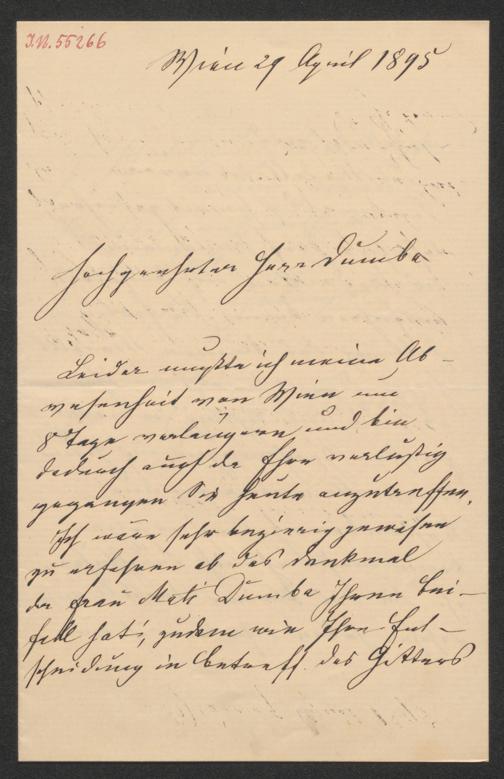 I.N. 55266
Wien 29 April 1895
Hochgeehrter Herr Dumba
Leider mußte ich meine Ab-
wesenheit von Wien um
8 Tage verlängern und bin
dadurch auch der Ehre verlustig
gegangen Sie heute anzutreffen.
Ich wäre sehr begierig gewesen
zu erfahren ob das Denkmal
der Frau Dumba Ihren Bei-
fall hat, zudem wie Ihre Ent-
scheidung in betreff des Gitters